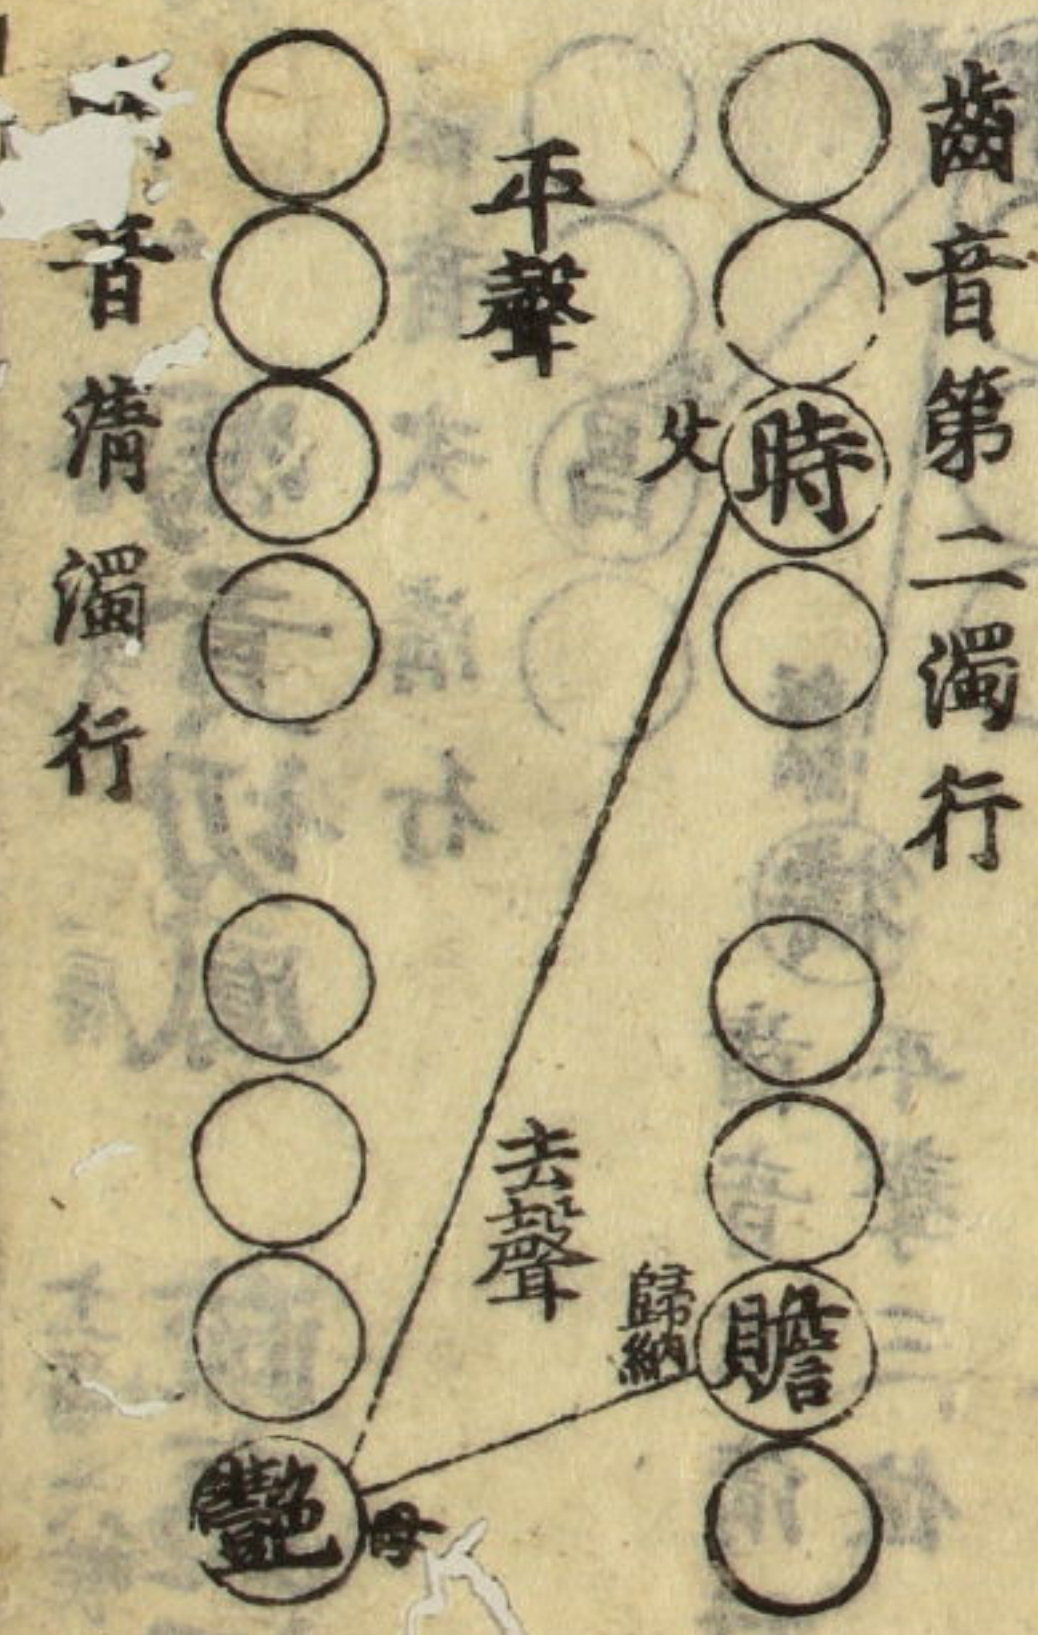 齒音第二濁行
時
父
贍
歸納
平聲
去聲
艷
母
音清濁行